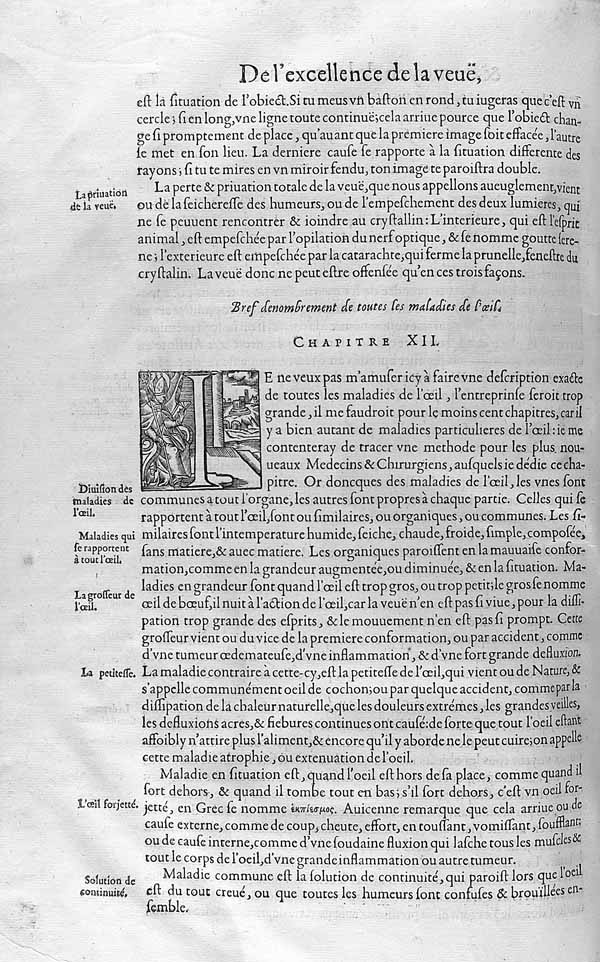 De l'excellence de la veuë,
est la situation de l'obiect. Si tu meus vn baston en rond, tu iugeras que c'est vn
cercle; si en long, vne ligne toute continuë; cela arriue pource que l'obiect chan-
ge si promptement de place, qu'auant que la premiere image soit effacée, l'autre
se met en son lieu. La derniere cause se rapporte à la situation differente des
rayons; si tu te mires en vn miroir fendu, ton image te paroistra double.
La priuation
de la veuë.
La perte & priuation totale de la veuë, que nous appellons aueuglement, vient
ou de la seicheresse des humeurs, ou de l'empeschement des deux lumieres, qui
ne se peuuent rencontrer & ioindre au crystallin: L'interieure, qui est l'esprit
animal, est empeschée par l'opilation du nerf optique, & se nomme goutte sere-
ne; l'exterieure est empeschée par la catarachte, qui ferme la prunelle, fenestre du
crystalin. La veuë donc ne peut estre offensée qu'en ces trois façons.
Bref denombrement de toutes les maladies de l'œil.
CHAPITRE XII.
IE ne veux pas m'amuser icy à faire vne description exacte
de toutes les maladies de l'œil, l'entreprinse seroit trop
grande, il me faudroit pour le moins cent chapitres, car il
y a bien autant de maladies particulieres de l'œil: ie me
contenteray de tracer vne methode pour les plus nou-
ueaux Medecins & Chirurgiens, ausquels ie dédie ce cha-
pitre. Or doncques des maladies de l'œil, les vnes sont
Diuision des
maladies de
l'œil.
communes a tout l'organe, les autres sont propres à chaque partie. Celles qui se
rapportent à tout l'œil, sont ou similaires, ou organiques, ou communes. Les si-
Maladies qui
se rapportent
à tout l'œil.
milaires sont l'intemperature humide, seiche, chaude, froide, simple, composée,
sans matiere, & auec matiere. Les organiques paroissent en la mauuaise confor-
mation, comme en la grandeur augmentée, ou diminuée, & en la situation. Ma-
ladies en grandeur sont quand l'œil est trop gros, ou trop petit; le gros se nomme
La grosseur de
l'œil.
œil de bœuf, il nuit à l'action de l'œil, car la veuë n'en est pas si viue, pour la dissi-
pation trop grande des esprits, & le mouuement n'en est pas si prompt. Cette
grosseur vient ou du vice de la premiere conformation, ou par accident, comme
d'vne tumeur œdemateuse, d'vne inflammation, & d'vne fort grande defluxion.
La petitesse.
La maladie contraire à cette-cy, est la petitesse de l'œil, qui vient ou de Nature, &
s'appelle communément oeil de cochon; ou par quelque accident, comme par la
dissipation de la chaleur naturelle, que les douleurs extrémes, les grandes veilles,
les defluxions acres, & fiebures continues ont causé: de sorte que tout l'oeil estant
affoibly n'attire plus l'aliment, & encore qu'il y aborde ne le peut cuire; on appelle
cette maladie atrophie, ou extenuation de l'oeil.
Maladie en situation est, quand l'oeil est hors de sa place, comme quand il
sort dehors, & quand il tombe tout en bas; s'il sort dehors, c'est vn oeil for-
L'œil forjetté.
jetté, en Grec se nomme Auicenne remarque que cela arriue ou de
cause externe, comme de coup, cheute, effort, en toussant, vomissant, soufflant;
ou de cause interne, comme d'vne soudaine fluxion qui lasche tous les muscles &
tout le corps de l'oeil, d'vne grande inflammation ou autre tumeur.
Solution de
continuité.
Maladie commune est la solution de continuité, qui paroist lors que l'oeil
est du tout creué, ou que toutes les humeurs sont confuses & broüillées en-
semble.